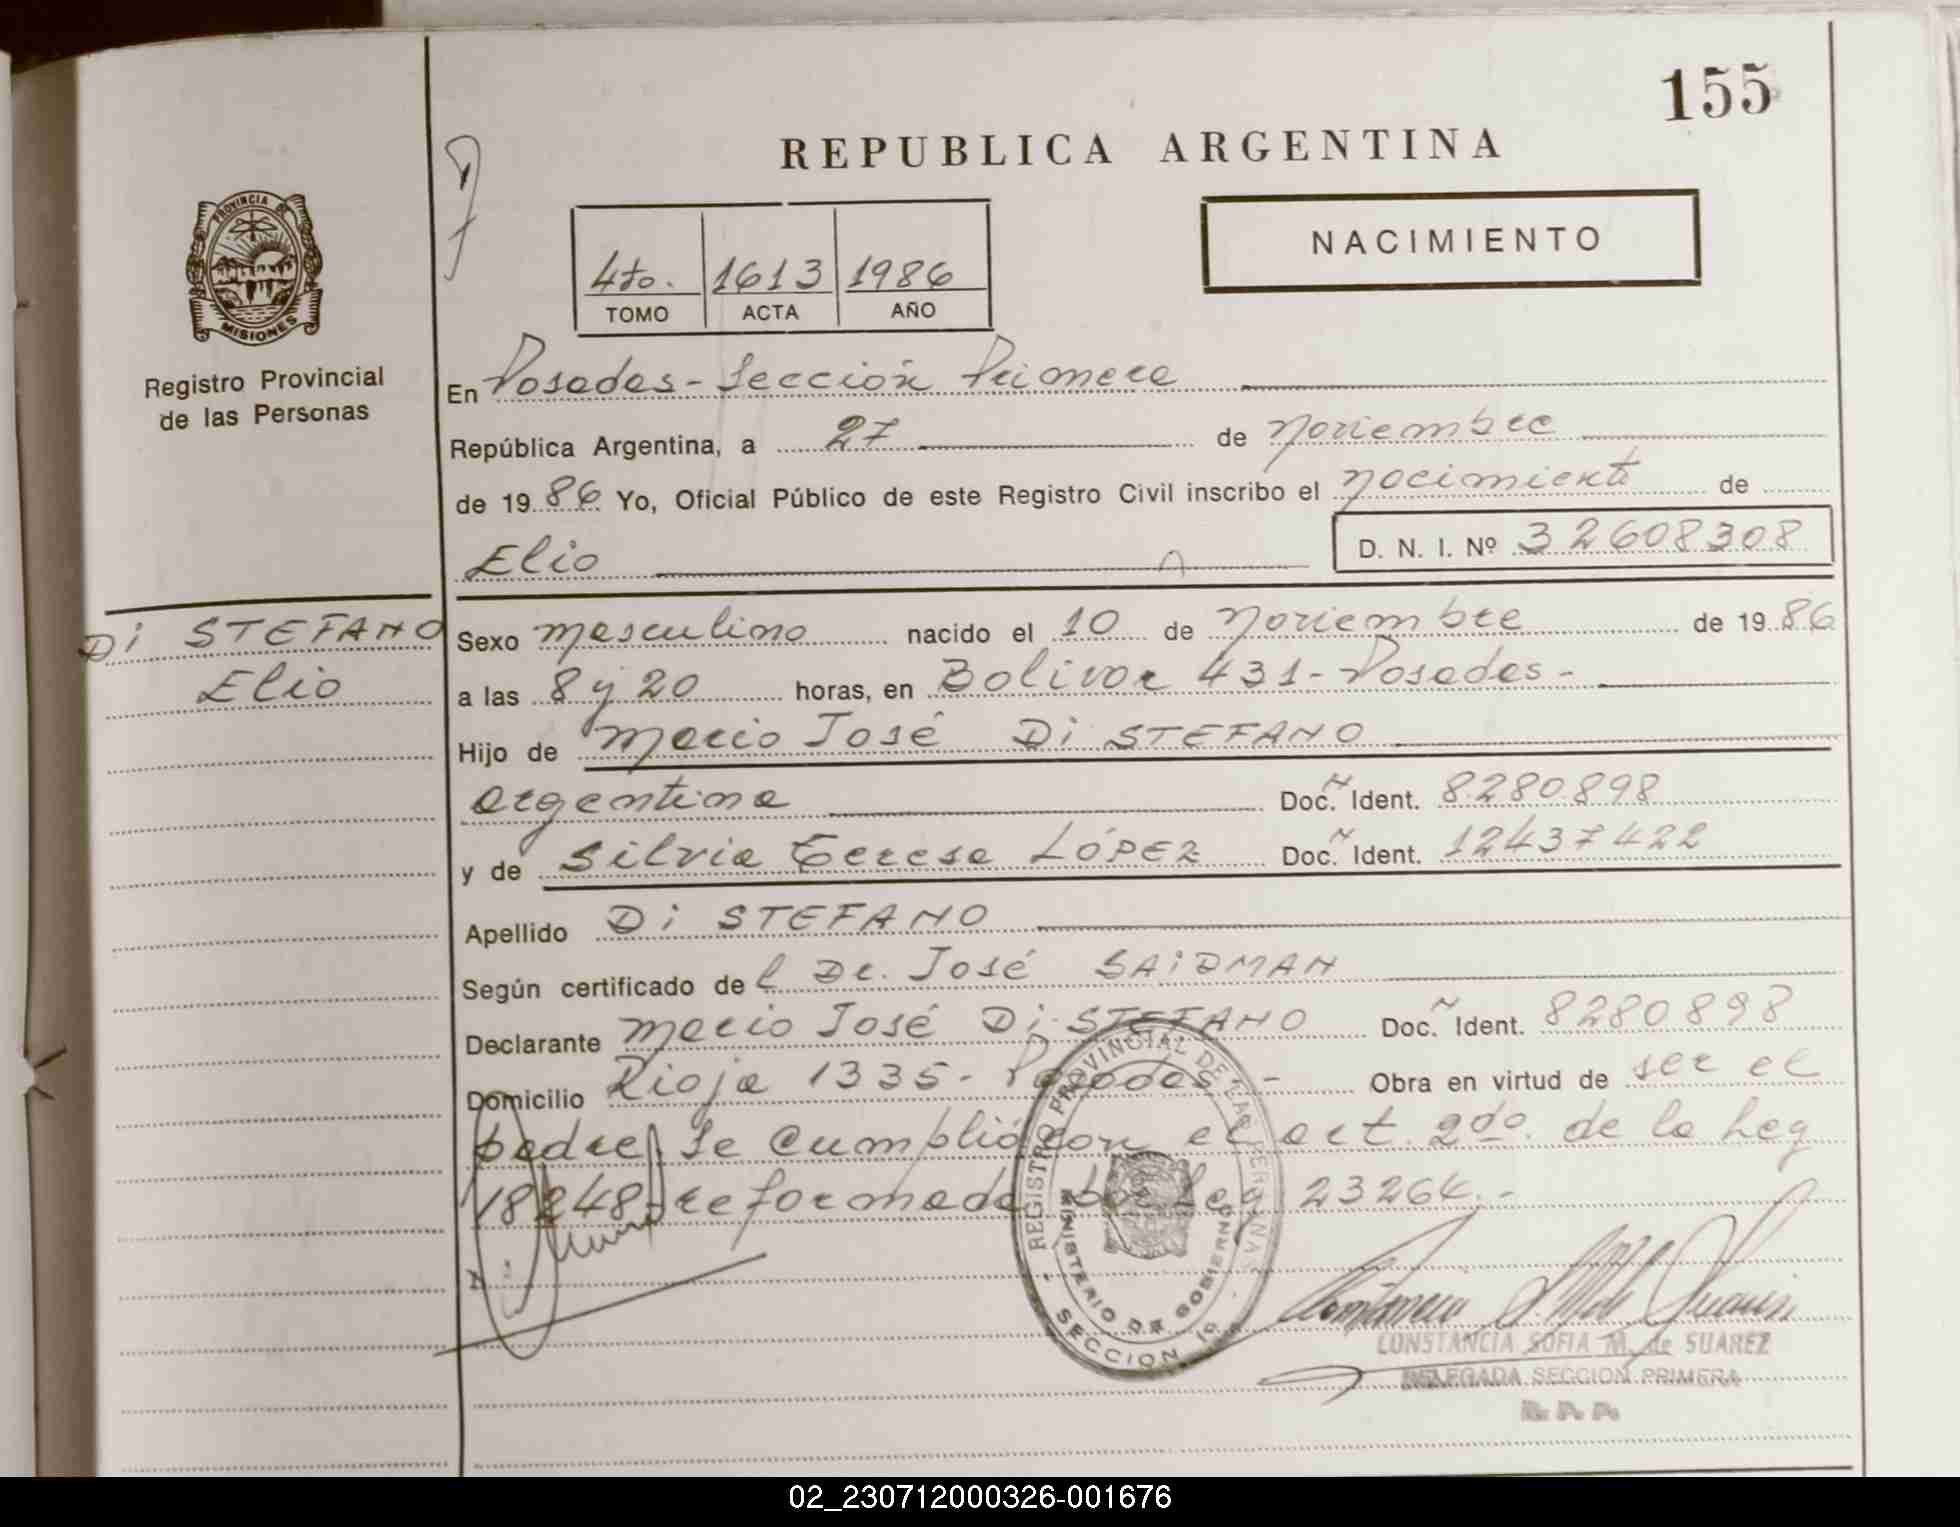 155
REPUBLICA ARGENTINA
PROVINCIA DE
MISIONES
Registro Provincial
de las Personas
4to. 1613 1986
TOMO ACTA AÑO
NACIMIENTO
En Posadas - Sección Primera
República Argentina, a 27 de Noviembre
de 1986 Yo, Oficial Público de este Registro Civil inscribo el nacimiento de
Elio D. N. I. Nº 32608308
DI STEFANO
Elio
Sexo masculino nacido el 10 de Noviembre de 1986
a las 8 y 20 horas, en Bolivar 431 - Posadas -
Hijo de Mario José Di STEFANO
argentina Doc. Ident. 8280898
y de Silvia Teresa LÓPEZ Doc. Ident. 12437422
Apellido Di STEFANO
Según certificado del Dr. José SAIDMAN
Declarante Mario José Di STEFANO Doc. Ident. 8280898
Domicilio Rioja 1335 - Posadas - Obra en virtud de ser el
padre. Se cumplió con el art. 2do. de la Ley
18248 reformada por Ley 23264.-
REGISTRO PROVINCIAL DE LAS PERSONAS
MINISTERIO DE GOBIERNO
SECCION 1º
CONSTANCIA SOFIA M. de SUAREZ
DELEGADA SECCION PRIMERA
02_230712000326-001676